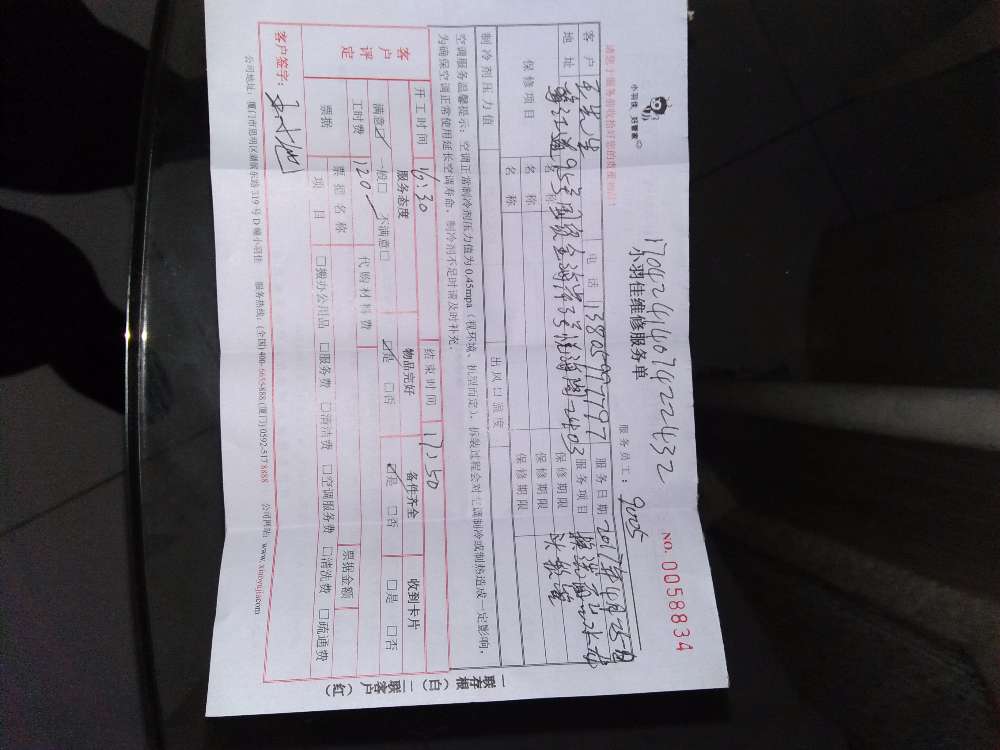 小羽佳，好管家
17042440742 2432
小羽佳维修服务单
服务员工：9005
NO. 0058834
客户 李先生 电话 13805977197 服务日期 2017年4月25日
地址 95号 2403 服务项目
保修项目 名称 保修期限
名称 保修期限
名称 保修期限
制冷剂压力值 出风口温度
空调服务温馨提示：空调正常制冷剂压力值为0.45mpa（视环境、机型而定），拆装过程会对空调制冷或制热造成一定影响，
为确保空调正常使用延长空调寿命，制冷剂不足时请及时补充。
客户评定
开工时间 16:30 结束时间 17:50
服务态度 物品完好 备件齐全 收到卡片
满意☑ 一般□ 不满意□ ☑是 □否 ☑是 □否 □是 □否
工时费 120 代购材料费
票据 票据名称 票据金额
项目 □搬办公用品 □服务费 □清洁费 □空调服务费 □清洗费 □疏通费
客户签字：
公司地址：厦门市思明区湖滨东路319号D幢小羽佳 服务热线：(全国)400-5655-888 (厦门)0592-5178888 公司网站：www.xiaoyujia.com
一联存根（白） 二联客户（红）